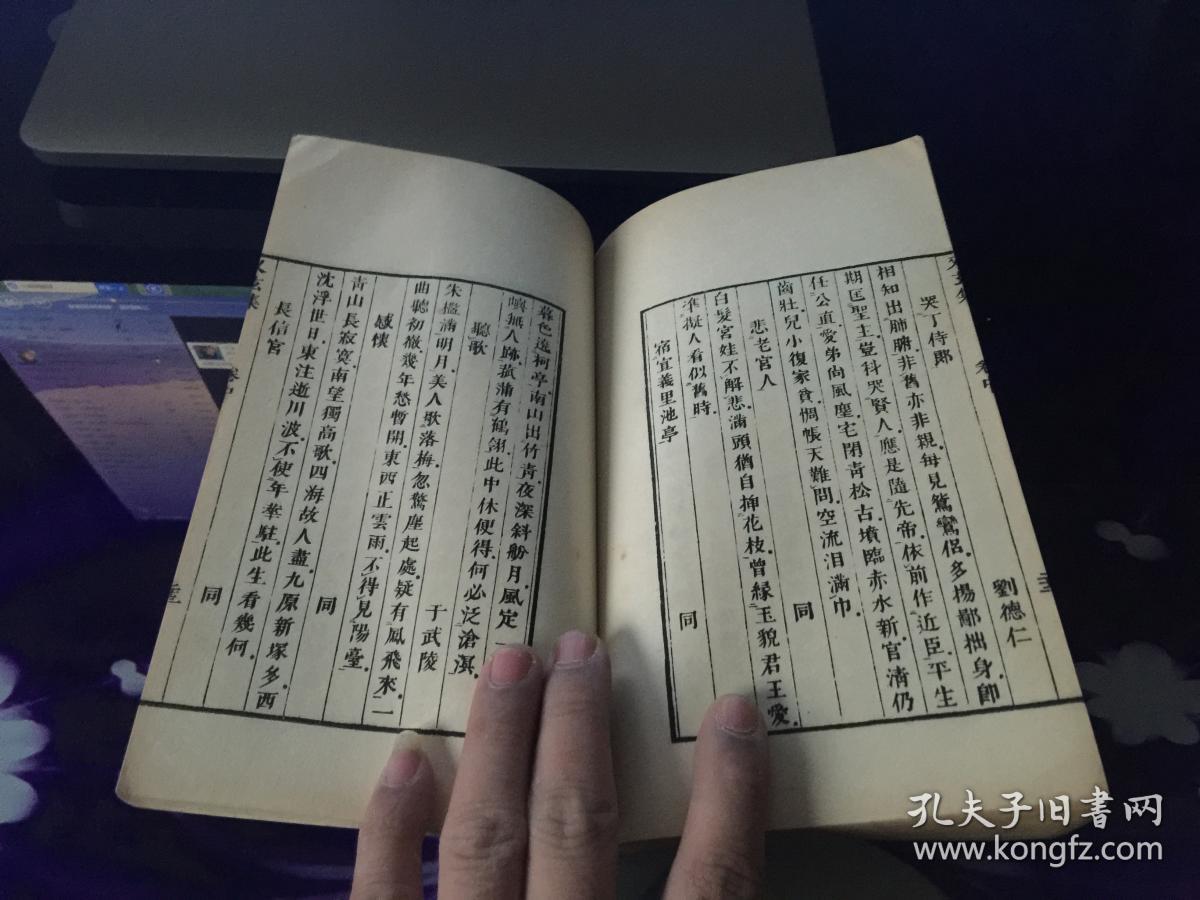 哭丁侍郎 劉德仁
相知出肺腑非舊亦非親.每見鴛鸞侶.多揚鄙拙身.卽
期匡聖主.豈料哭賢人.應是隨先帝.依前作近臣.平生
任公直.愛弟尚風塵.宅閉靑松古.墳臨赤水新.官淸仍
齒壯.兒小復家貧.惆悵天難問.空流泪滿巾.
悲老宮人 同
白髮宮娃不解悲.滿頭猶自揷花枝.曾緣玉貌君王愛.
准擬人看似舊時.
宿宜義里池亭 同
暮色遶柯亭.南山出竹靑.夜深斜舫月.風定
曠無人跡.菰蒲有鶴翎.此中休便得.何必泛滄溟.
聽歌 于武陵
朱檻滿明月.美人歌落梅.忽驚塵起處.疑有鳳飛來.一
曲聽初徹.幾年愁暫開.東西正雲雨.不得見陽臺.
感懷 同
靑山長寂寞.南望獨高歌.四海故人盡.九原新塚多.西
沈浮世日.東注逝川波.不使年華駐.此生看幾何.
長信宮 同
又玄集 卷中
孔夫子旧书网
www.kongfz.com